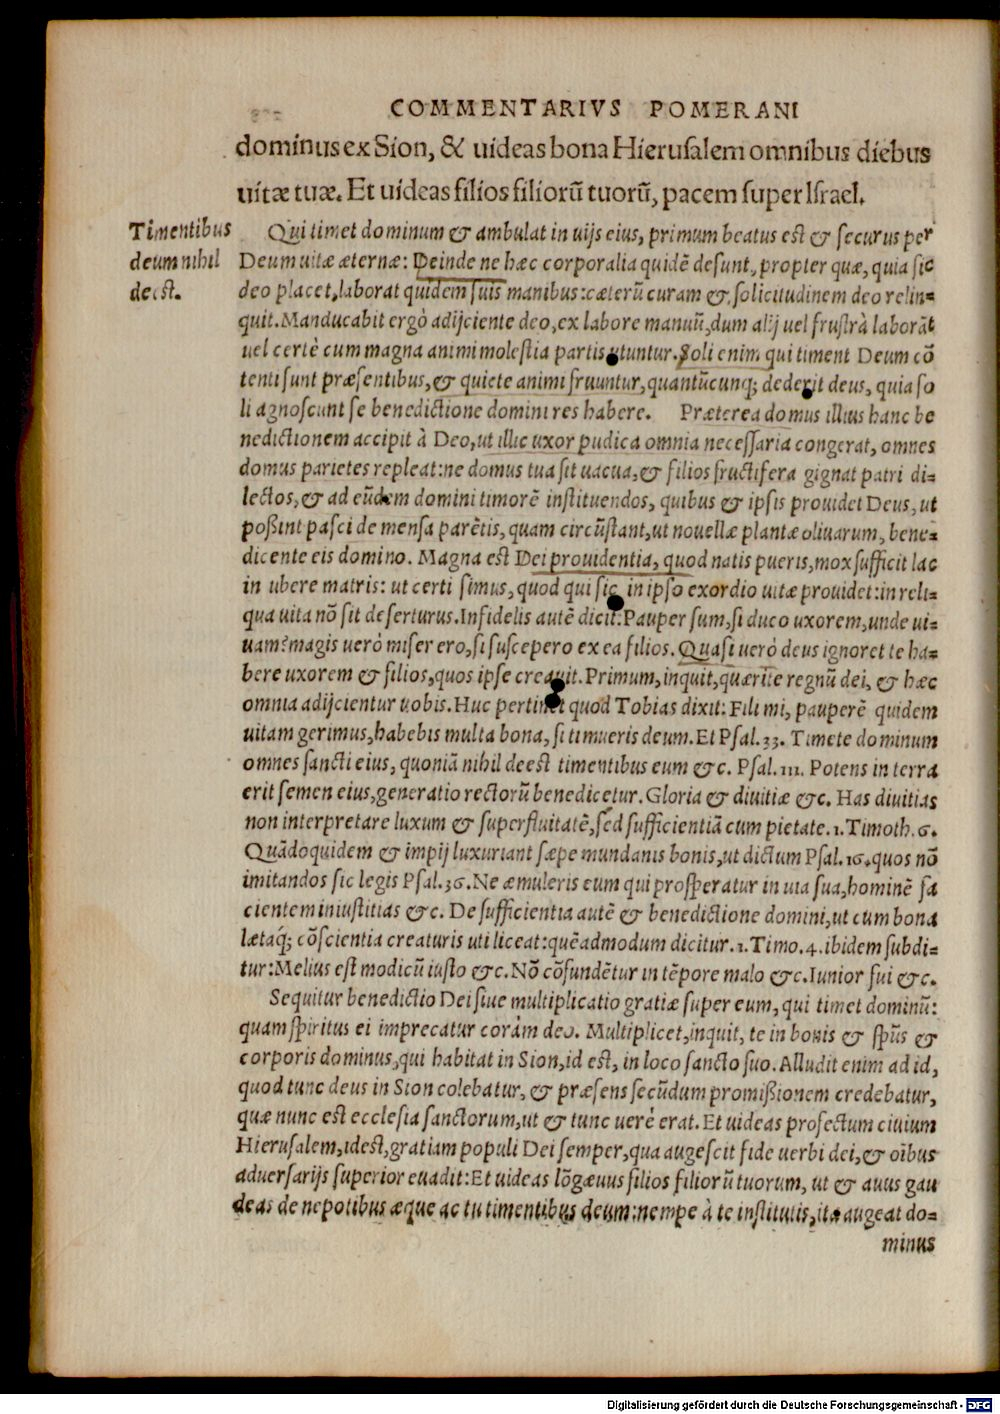 COMMENTARIVS POMERANI
dominus ex Sion, & uideas bona Hierusalem omnibus diebus
uitæ tuæ. Et uideas filios filiorũ tuorũ, pacem super Israel.
Timentibus
deum nihil
deest.
Qui timet dominum & ambulat in uijs eius, primum beatus est & securus per
Deum uitæ æternæ: Deinde ne hæc corporalia quidẽ desunt, propter quæ, quia sic
deo placet, laborat quidem suis manibus: cæterũ curam & solicitudinem deo relin=
quit. Manducabit ergò adijciente deo, ex labore manuũ, dum alij uel frustrà laborãt
uel certè cum magna animi molestia partis utuntur. Soli enim qui timent Deum cõ
tenti sunt præsentibus, & quiete animi fruuntur, quantũcunq; dederit deus, quia so
li agnoscunt se benedictione domini res habere. Præterea domus illius hanc be
nedictionem accipit à Deo, ut illic uxor pudica omnia necessaria congerat, omnes
domus parietes repleat: ne domus tua sit uacua, & filios fructifera gignat patri di=
lectos, & ad eũdem domini timorẽ instituendos, quibus & ipsis prouidet Deus, ut
poßint pasci de mensa parẽtis, quam circũstant, ut nouellæ plantæ oliuarum, bene=
dicente eis domino. Magna est Dei prouidentia, quod natis pueris, mox sufficit lac
in ubere matris: ut certi simus, quod qui sic in ipso exordio uitæ prouidet: in reli=
qua uita nõ sit deserturus. Infidelis autẽ dicit: Pauper sum, si duco uxorem, unde ui=
uam? magis uerò miser ero, si suscepero ex ea filios. Quasi uerò deus ignoret te ha=
bere uxorem & filios, quos ipse creauit. Primum, inquit, quærite regnũ dei, & hæc
omnia adijcientur uobis. Huc pertinet quod Tobias dixit: Fili mi, pauperẽ quidem
uitam gerimus, habebis multa bona, si timueris deum. Et Psal. 33. Timete dominum
omnes sancti eius, quoniã nihil deest timentibus eum &c. Psal. 111. Potens in terra
erit semen eius, generatio rectorũ benedicetur. Gloria & diuitiæ &c. Has diuitias
non interpretare luxum & superfluitatẽ, sed sufficientiã cum pietate. 1. Timoth. 6.
Quãdoquidem & impij luxuriant sæpe mundanis bonis, ut dictum Psal. 16. quos nõ
imitandos sic legis Psal. 36. Ne æmuleris eum qui prosperatur in uia sua, hominẽ fa
cientem iniustitias &c. De sufficientia autẽ & benedictione domini, ut cum bona
lætaq; cõscientia creaturis uti liceat: quẽadmodum dicitur. 1. Timo. 4. ibidem subdi=
tur: Melius est modicũ iusto &c. Nõ cõfundẽtur in tẽpore malo &c. Iunior fui &c.
Sequitur benedictio Dei siue multiplicatio gratiæ super eum, qui timet dominũ:
quam spiritus ei imprecatur coràm deo. Multiplicet, inquit, te in bonis & sp̃us &
corporis dominus, qui habitat in Sion, id est, in loco sancto suo. Alludit enim ad id,
quod tunc deus in Sion colebatur, & præsens secũdum promißionem credebatur,
quæ nunc est ecclesia sanctorum, ut & tunc uerè erat. Et uideas profectum ciuium
Hierusalem, idest, gratiam populi Dei semper, qua augescit fide uerbi dei, & oĩbus
aduersarijs superior euadit: Et uideas lõgæuus filios filiorũ tuorum, ut & auus gau
deas de nepotibus æque ac tu timentibus deum: nempe à te institutis, ita augeat do=
minus
Digitalisierung gefördert durch die Deutsche Forschungsgemeinschaft - DFG